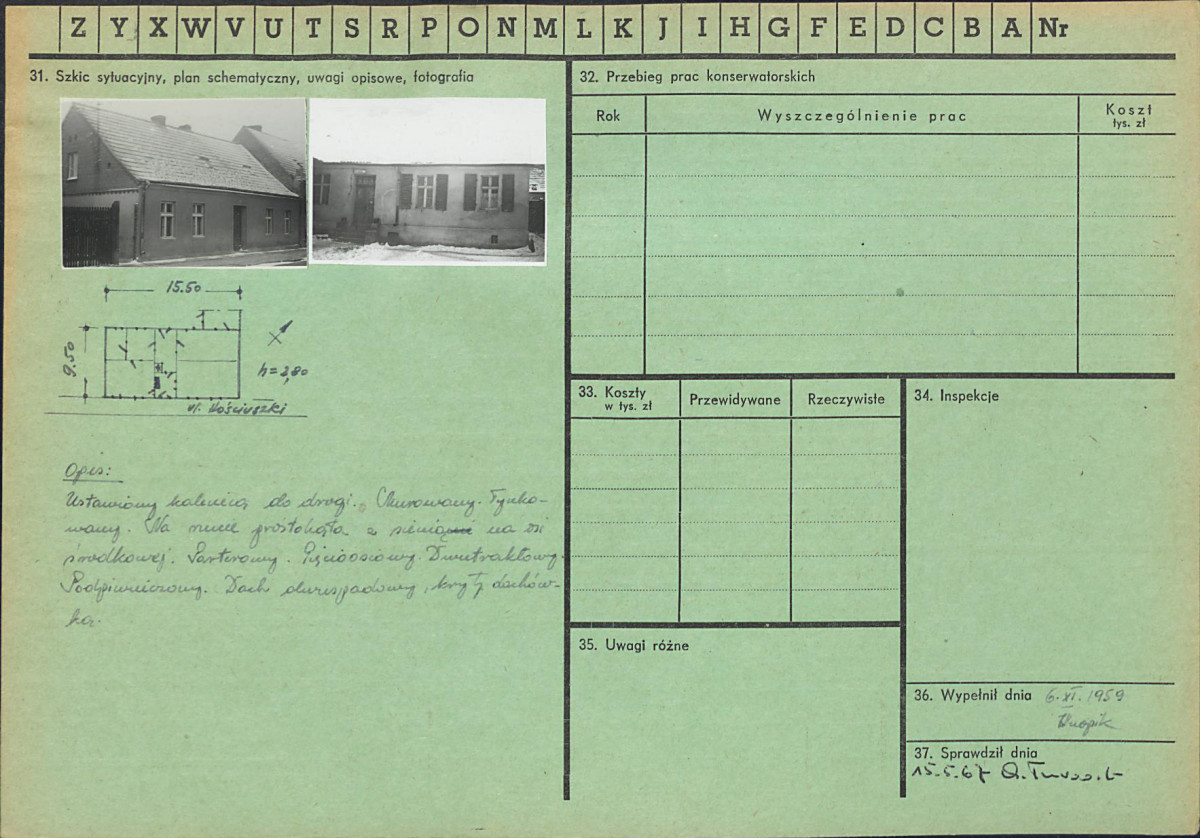 Z Y X W V U T S R P O N M L K J I H G F E D C B A Nr
31. Szkic sytuacyjny, plan schematyczny, uwagi opisowe, fotografia
15.50
9.50
h = 3,80
ul. Kościuszki
Opis:
Ustawiony kalenicą do drogi. Murowany. Tynko-
wany. Na rzucie prostokąta z sienią na osi
środkowej. Parterowy. Pięcioosiowy. Dwutraktowy.
Podpiwniczony. Dach dwuspadowy, kryty dachów-
ką.
32. Przebieg prac konserwatorskich
Rok Wyszczególnienie prac Koszt
tys. zł
33. Koszty
w tys. zł
Przewidywane Rzeczywiste
34. Inspekcje
35. Uwagi różne
36. Wypełnił dnia 6.XI.1959
37. Sprawdził dnia
15.5.67